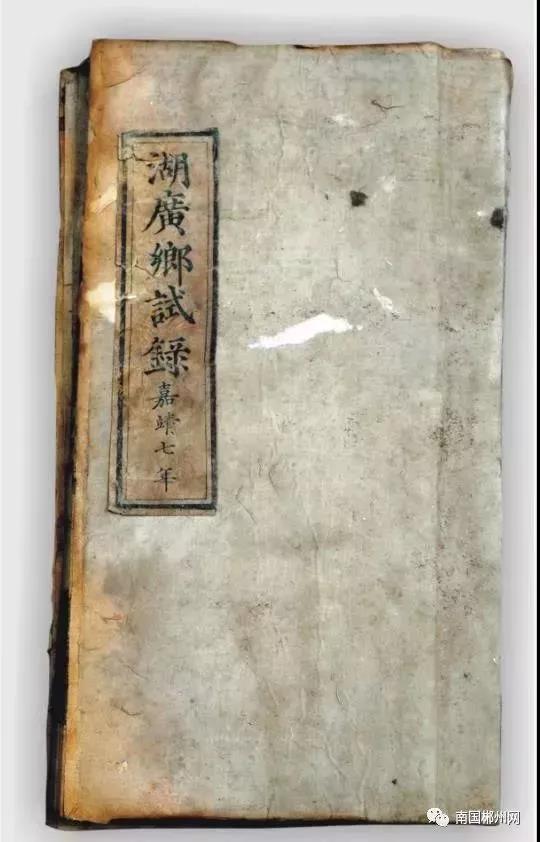 湖廣鄉試錄嘉靖七年
南国郴州网